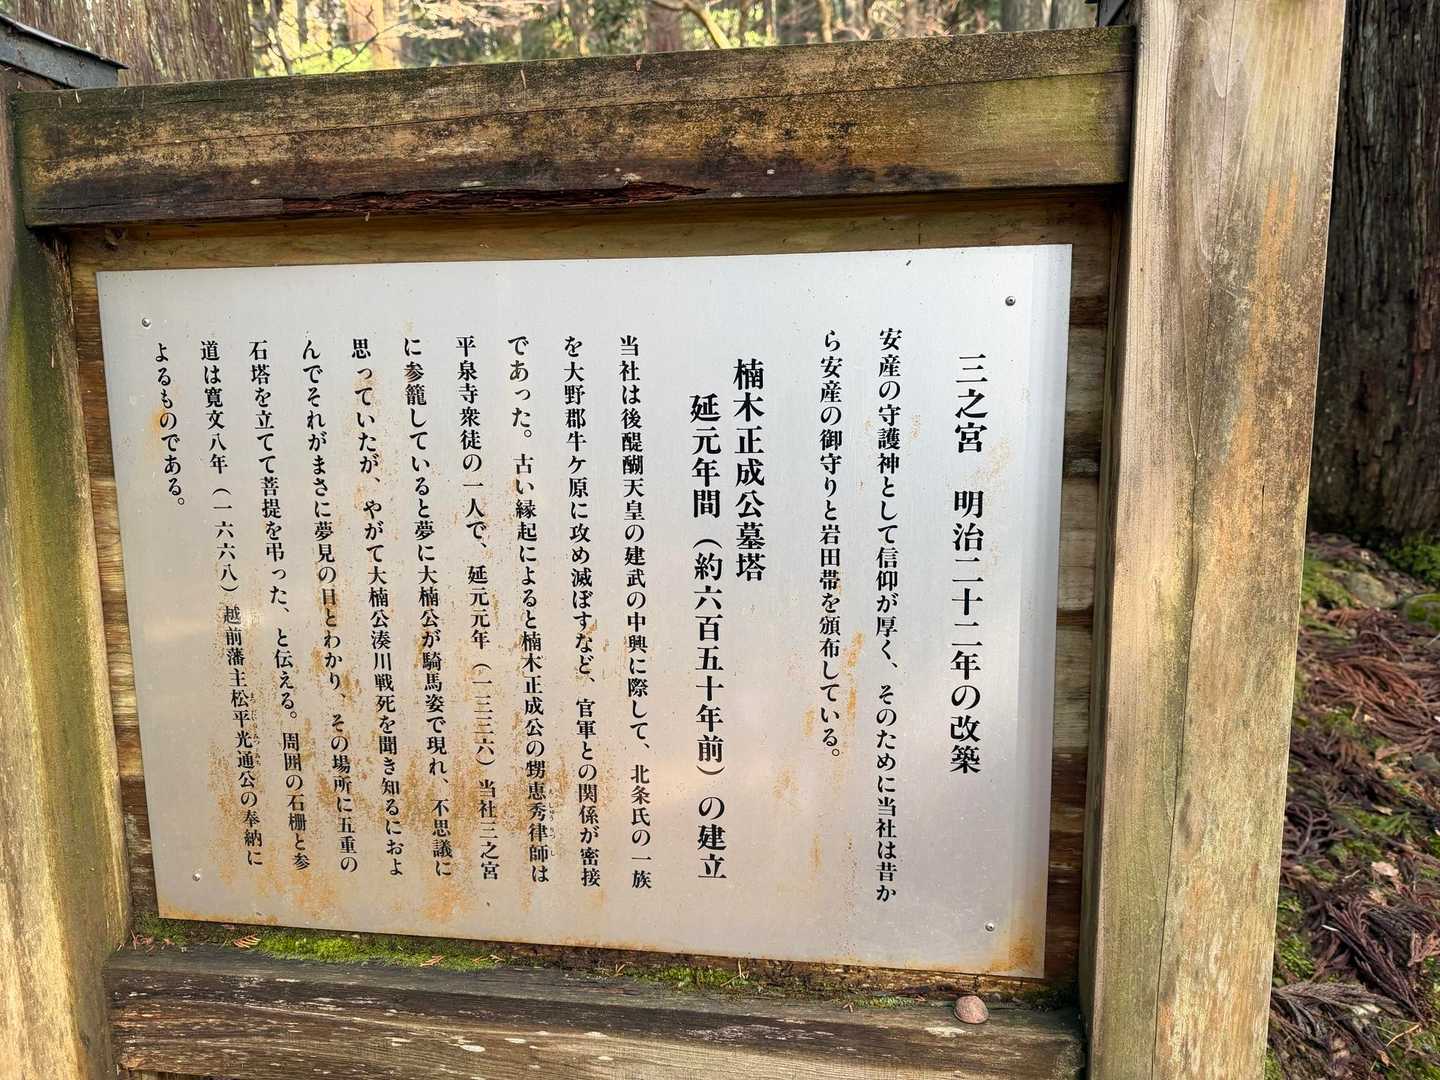 三之宮　明治二十二年の改築
安産の守護神として信仰が厚く、そのために当社は昔か
ら安産の御守りと岩田帯を頒布している。
楠木正成公墓塔
延元年間（約六百五十年前）の建立
当社は後醍醐天皇の建武の中興に際して、北条氏の一族
を大野郡牛ケ原に攻め滅ぼすなど、官軍との関係が密接
であった。古い縁起によると楠木正成公の甥恵秀律師は
平泉寺衆徒の一人で、延元元年（一三三六）当社三之宮
に参籠していると夢に大楠公が騎馬姿で現れ、不思議に
思っていたが、やがて大楠公湊川戦死を聞き知るにおよ
んでそれがまさに夢見の日とわかり、その場所に五重の
石塔を立てて菩提を弔った、と伝える。周囲の石柵と参
道は寛文八年（一六六八）越前藩主松平光通公の奉納に
よるものである。